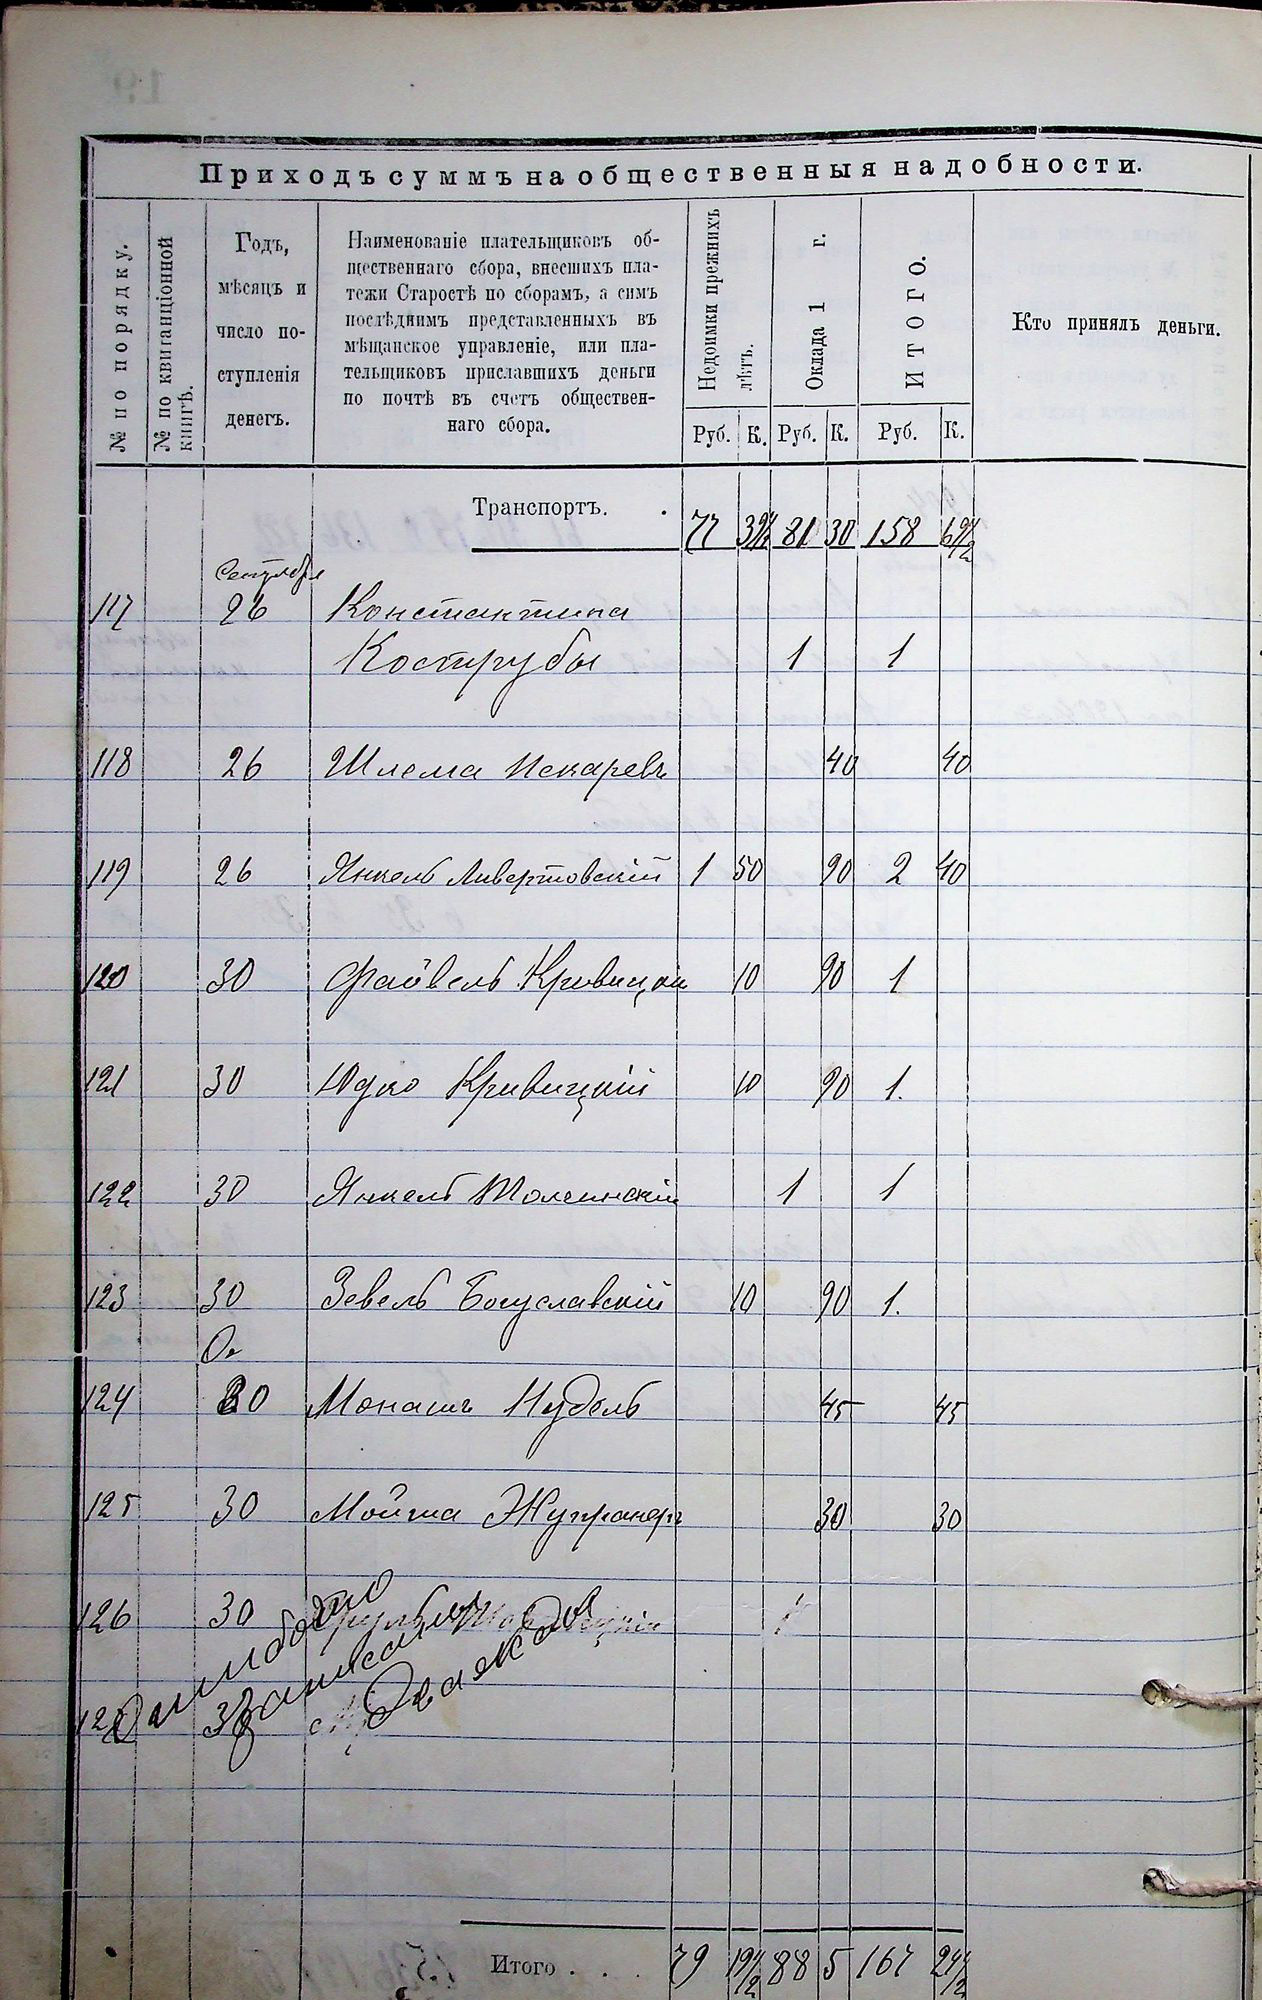 Приходъ суммъ на общественныя надобности.
№ по порядку.
№ по квитанціонной книгѣ.
Годъ,
мѣсяцъ и
число по-
ступленія
денегъ.
Наименованіе плательщиковъ об-
щественнаго сбора, внесшихъ пла-
тежи Старостѣ по сборамъ, а симъ
послѣднимъ представленныхъ въ
мѣщанское управленіе, или пла-
тельщиковъ приславшихъ деньги
по почтѣ въ счетъ обществен-
наго сбора.
Недоимки прежнихъ лѣтъ.
Оклада 1 г.
ИТОГО.
Кто принялъ деньги.
Руб. К. Руб. К. Руб. К.
Транспортъ. . 77 39 1/2 81 30 158 69 1/2
Сентября
117 26 Константина
Кострубы 1 1
118 26 Шлема Искаревъ 40 40
119 26 Янкель Ливертовскій 1 50 90 2 40
120 30 Файвель Кривицкій 10 90 1
121 30 Юдко Кривицкій 10 90 1.
122 30 Янкель Толчинскій 1 1
123 30 Зевель Богуславскій 10 90 1.
124 30 Монашъ Нудель 45 45
125 30 Мойша Жупранеръ 30 30
126 30
Ошибочно
записаны
два
Итого . . . 79 19 1/2 88 5 167 24 1/2